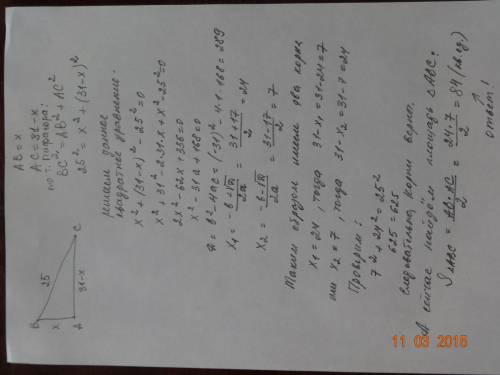 B
25
x
A
31-x
C
AB = x
AC = 31-x
по т. Пифагора:
BC² = AB² + AC²
25² = x² + (31-x)²
решаем данное
квадратное уравнение:
x² + (31-x)² - 25² = 0
x² + 31² - 2·31·x + x² - 25² = 0
2x² - 62x + 336 = 0
x² - 31x + 168 = 0
D = b² - 4ac = (-31)² - 4·1·168 = 289
x₁ = (-b + √D)/2a = (31+17)/2 = 24
x₂ = (-b - √D)/2a = (31-17)/2 = 7
Таким образом имеем два корня
x₁ = 24, тогда 31-x₁ = 31-24 = 7
или x₂ = 7, тогда 31-x₂ = 31-7 = 24
Проверим:
7² + 24² = 25²
625 = 625
следовательно, корни верно.
А сейчас найдём площадь △ABC:
S△ABC = AB·AC/2 = 24·7/2 = 84 (кв.ед.)
↑
ответ!
11 03 2015